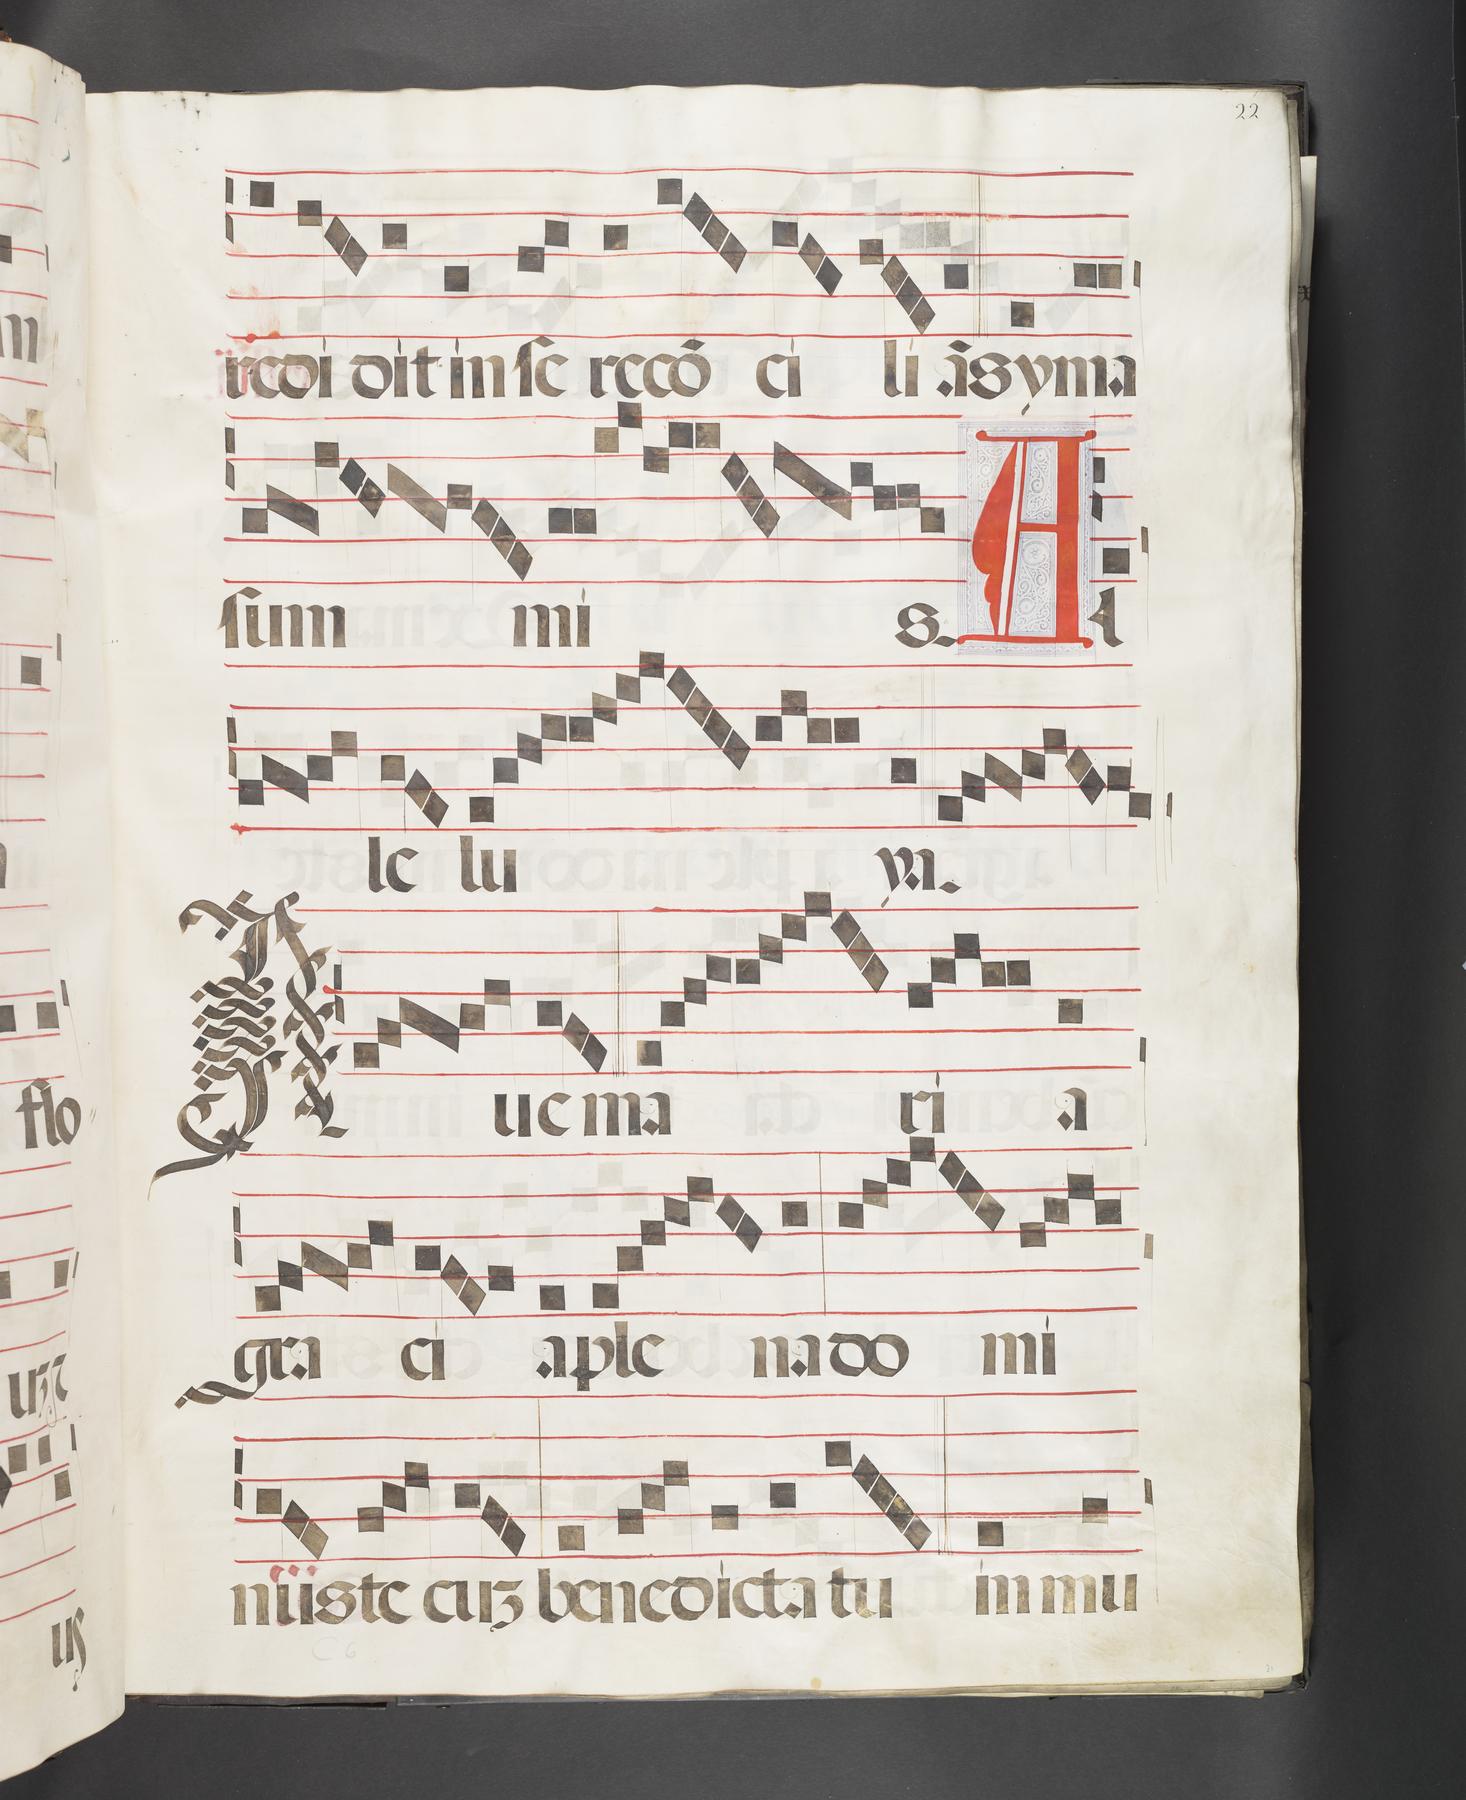 22
redi dit in se recō ci li ās yma
sum mi s. Al
le lu ya.
Aue ma ri a
gra ci a ple na do mi
nus te cuz benedicta tu in mu
C 6
in
flo
us